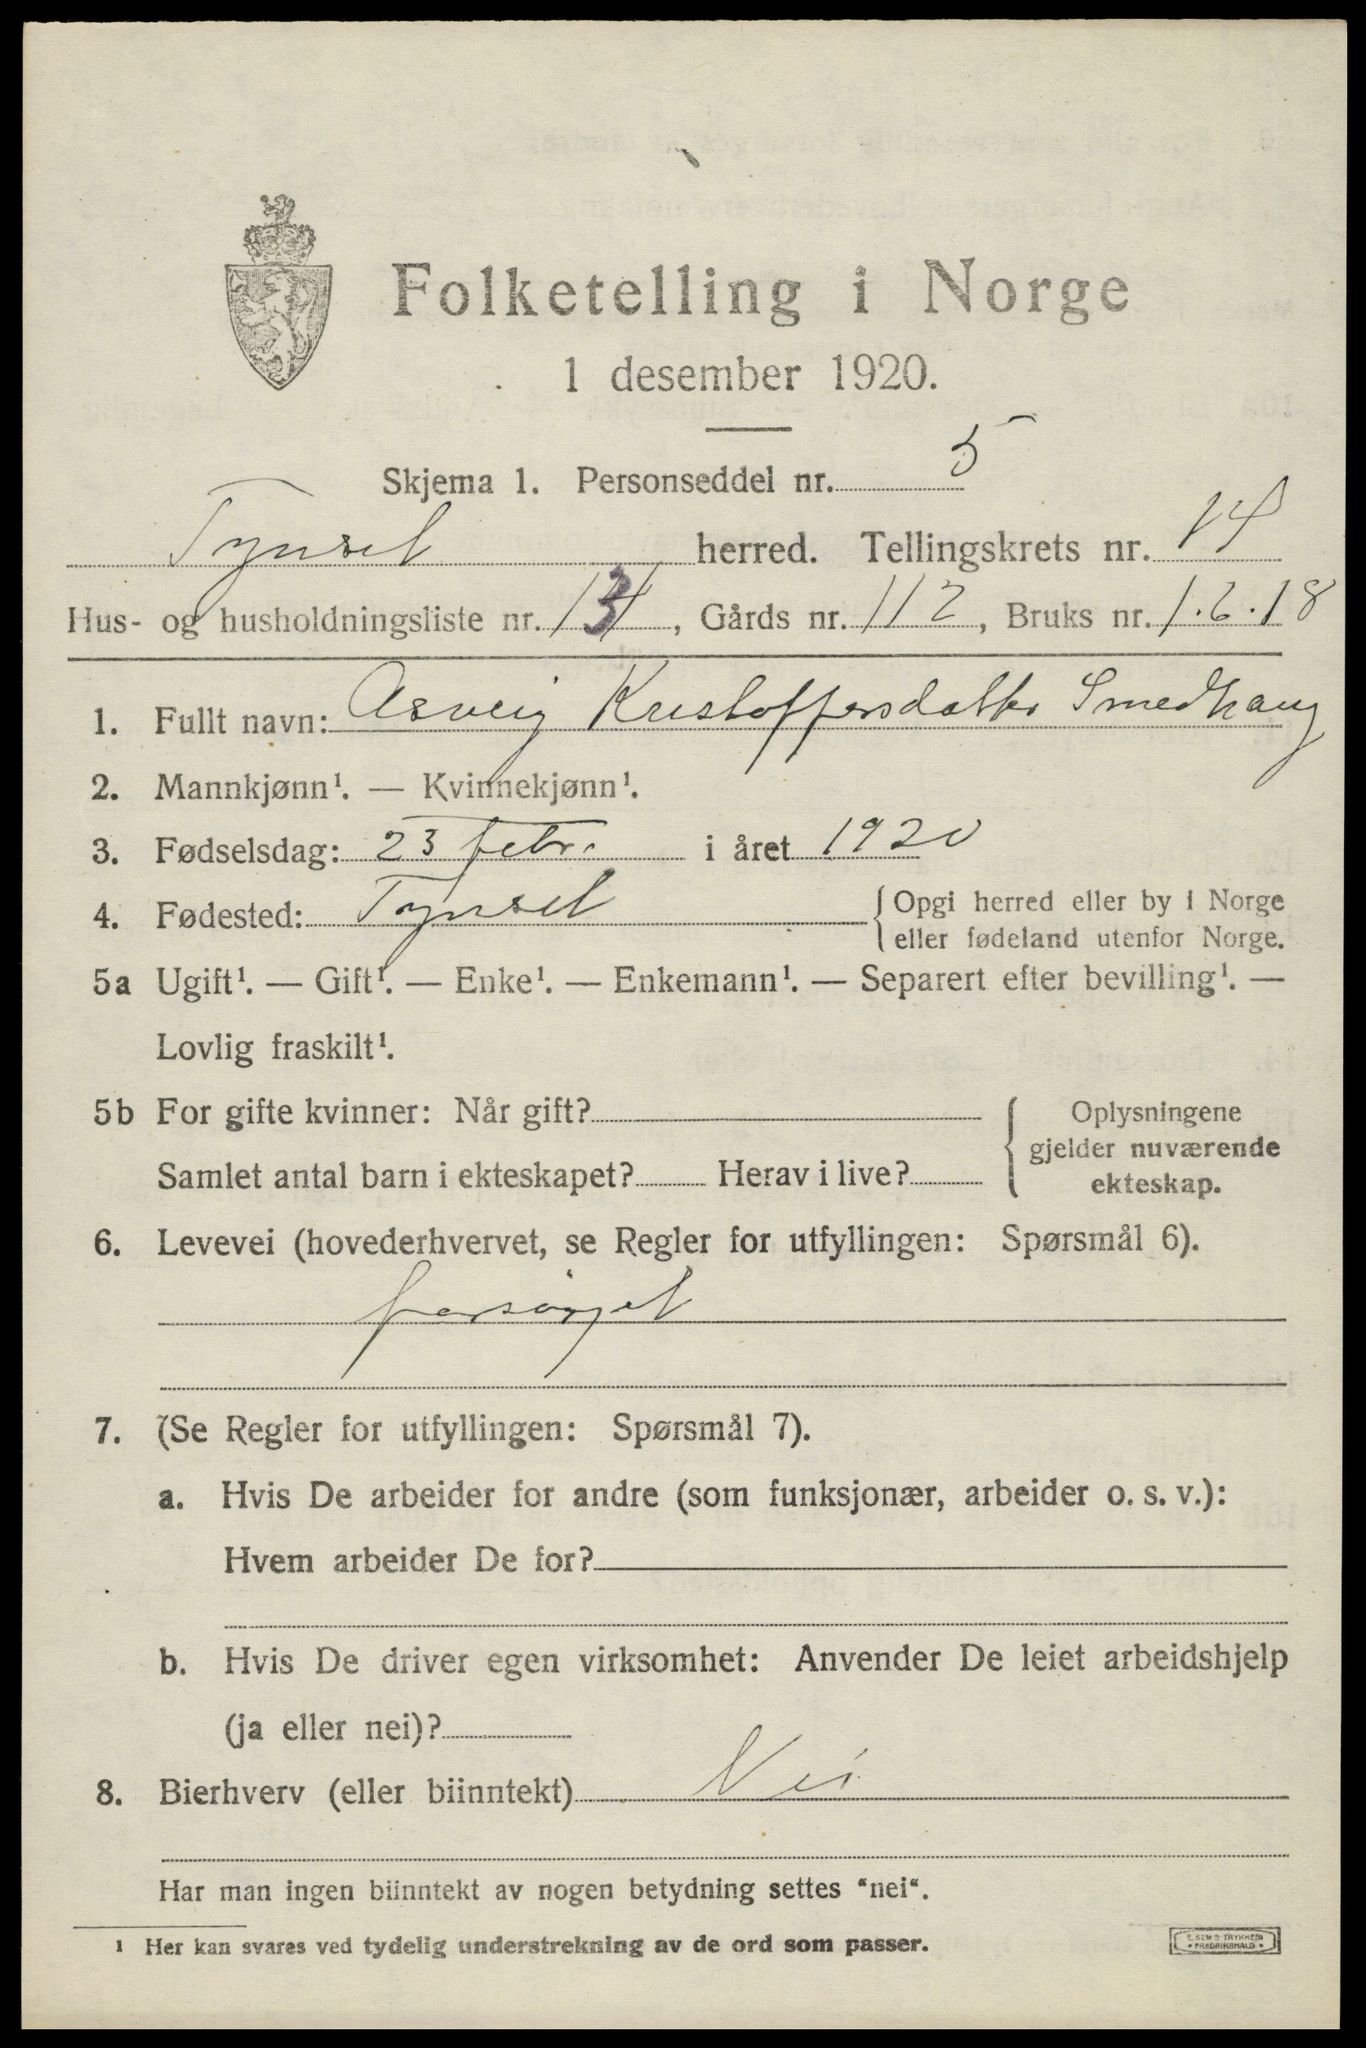 Folketelling i Norge
1 desember 1920.
Skjema 1. Personseddel nr. 5
Tynset herred. Tellingskrets nr. 14
Hus- og husholdningsliste nr. 13, Gårds nr. 112, Bruks nr. 1.6.18
1. Fullt navn: Asveig Kristoffersdatter Smedhaug
2. Mannkjønn¹. — Kvinnekjønn¹.
3. Fødselsdag: 23 febr. i året 1920
4. Fødested: Tynset {Opgi herred eller by i Norge
eller fødeland utenfor Norge.
5a Ugift¹. — Gift¹. — Enke¹. — Enkemann¹. — Separert efter bevilling¹. —
Lovlig fraskilt¹.
5b For gifte kvinner: Når gift? Oplysningene
gjelder nuværende
Samlet antal barn i ekteskapet? Herav i live? ekteskap.
6. Levevei (hovederhvervet, se Regler for utfyllingen: Spørsmål 6).
forsørget
7. (Se Regler for utfyllingen: Spørsmål 7).
a. Hvis De arbeider for andre (som funksjonær, arbeider o. s. v.):
Hvem arbeider De for?
b. Hvis De driver egen virksomhet: Anvender De leiet arbeidshjelp
(ja eller nei)?
8. Bierhverv (eller biinntekt) Nei
Har man ingen biinntekt av nogen betydning settes "nei".
¹ Her kan svares ved tydelig understrekning av de ord som passer.
E. SEM'S TRYKKERI
• FREDRIKSHALD •